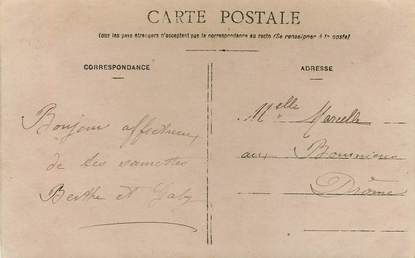 CARTE POSTALE
Tous les pays étrangers n'acceptent pas la correspondance au recto (Se renseigner à la poste)
CORRESPONDANCE
ADRESSE
Bonjour affectueux
de ses
Berthe et Gaby
Melle Marcelle
aux
Drôme